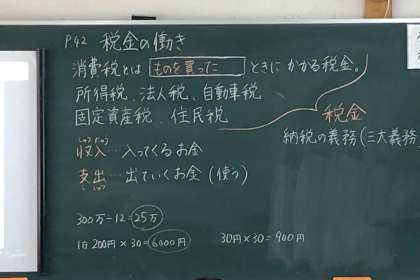 P.42 税金の働き
消費税とは ものを買った ときにかかる税金。
所得税、法人税、自動車税
固定資産税、住民税
税金
納税の義務(三大義務
しゅうにゅう
収入…入ってくるお金
ししゅつ
支出…出ていくお金(使う)
300万÷12=25万
1日200円×30=6000円
30円×30=900円